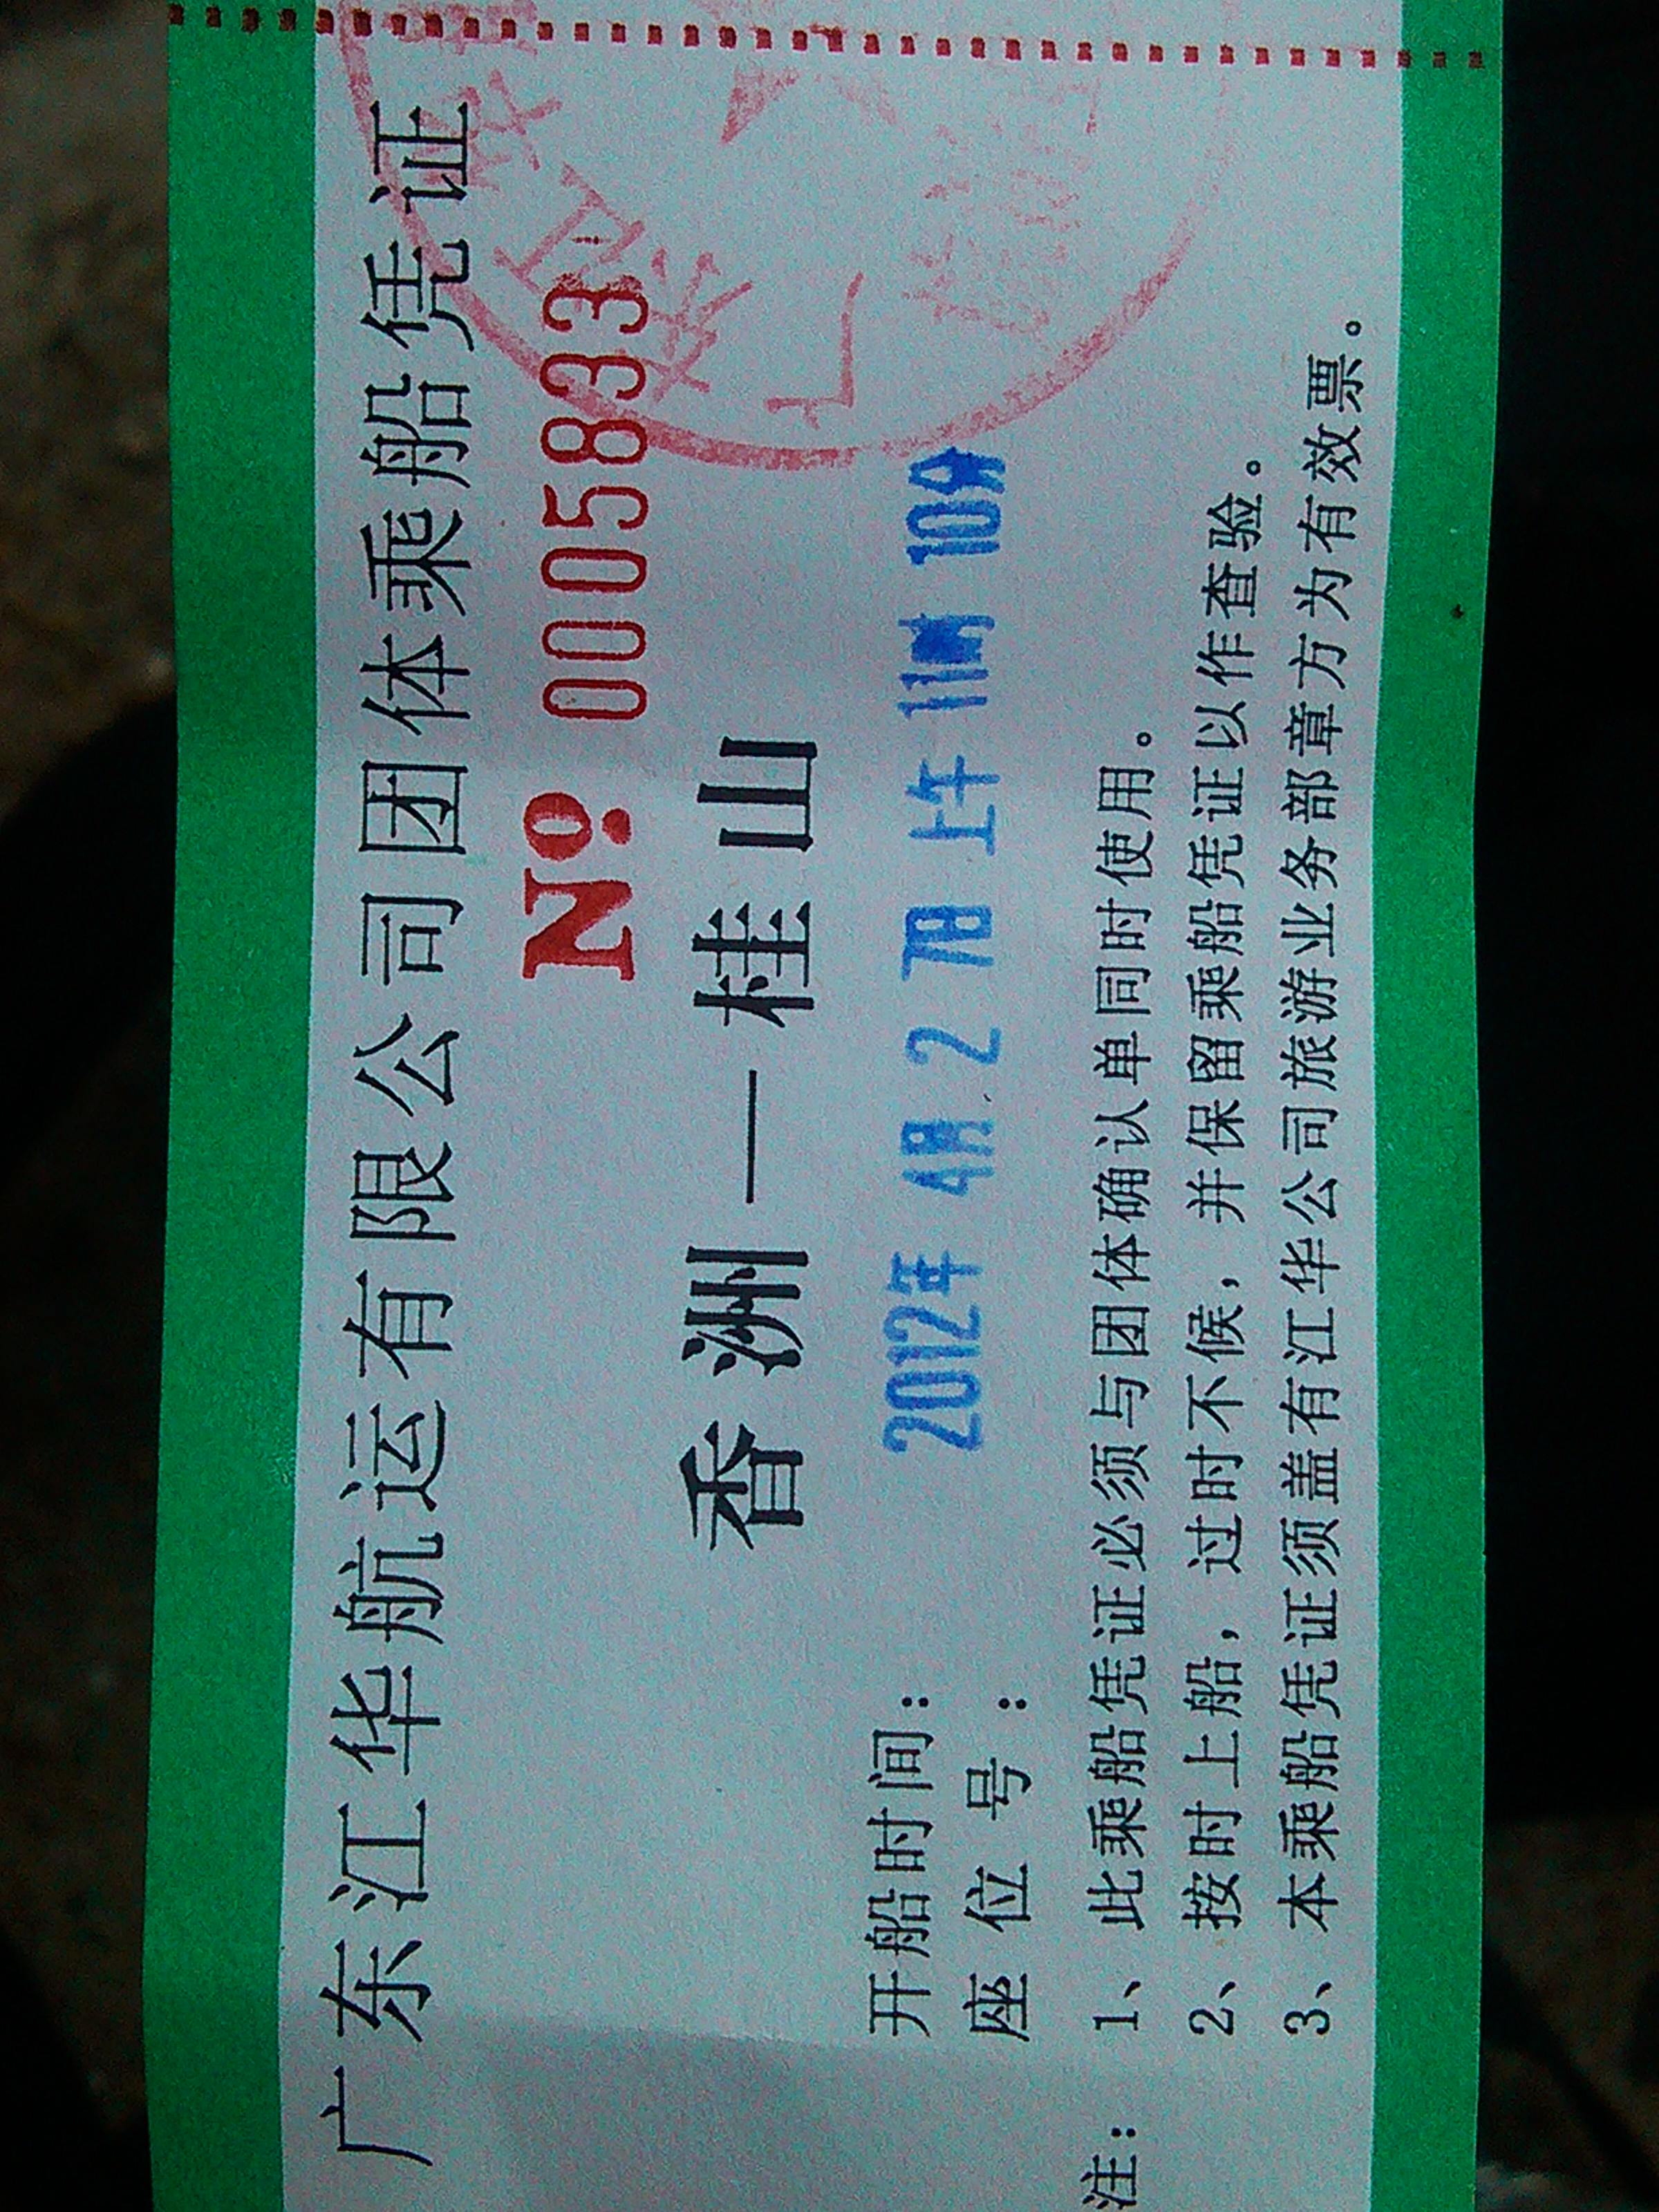 广东江华航运有限公司团体乘船凭证
№ 0005833
香洲—桂山
开船时间： 2012年 4月. 2 7日 上午 11時 10分
座位号：
注： 1、此乘船凭证必须与团体确认单同时使用。
2、按时上船，过时不候，并保留乘船凭证以作查验。
3、本乘船凭证须盖有江华公司旅游业务部章方为有效票。